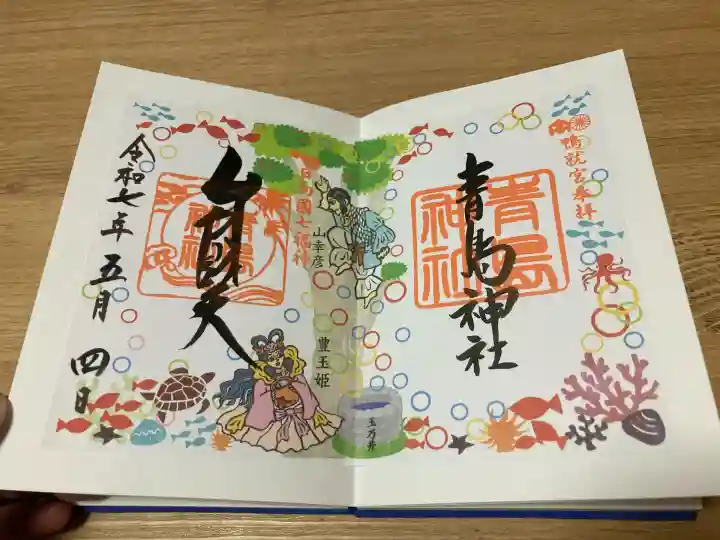 鴨就宮参拝
青島神社
青島
神社
山幸彦
豊玉姫
玉乃井
日向國七福神
弁財天
青島
神社
令和七年五月四日